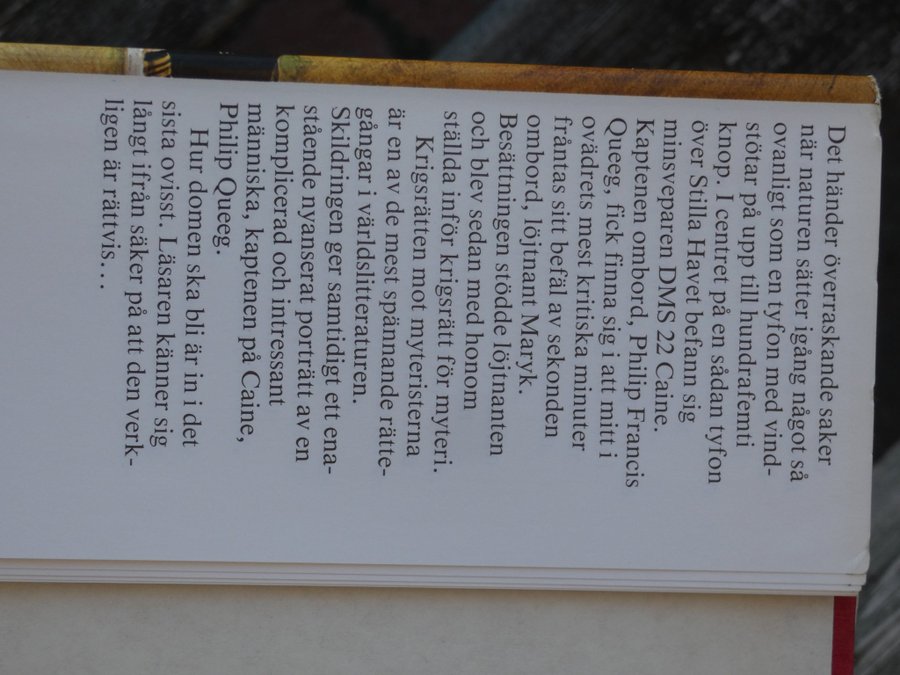 Det händer överraskande saker
när naturen sätter igång något så
ovanligt som en tyfon med vind-
stötar på upp till hundrafemti
knop. I centret på en sådan tyfon
över Stilla Havet befann sig
minsveparen DMS 22 Caine.
Kaptenen ombord, Philip Francis
Queeg, fick finna sig i att mitt i
ovädrets mest kritiska minuter
fråntas sitt befäl av sekonden
ombord, löjtnant Maryk.
Besättningen stödde löjtnanten
och blev sedan med honom
ställda inför krigsrätt för myteri.
Krigsrätten mot myteristerna
är en av de mest spännande rätte-
gångar i världslitteraturen.
Skildringen ger samtidigt ett ena-
stående nyanserat porträtt av en
komplicerad och intressant
människa, kaptenen på Caine,
Philip Queeg.
Hur domen ska bli är in i det
sista ovisst. Läsaren känner sig
långt ifrån säker på att den verk-
ligen är rättvis...